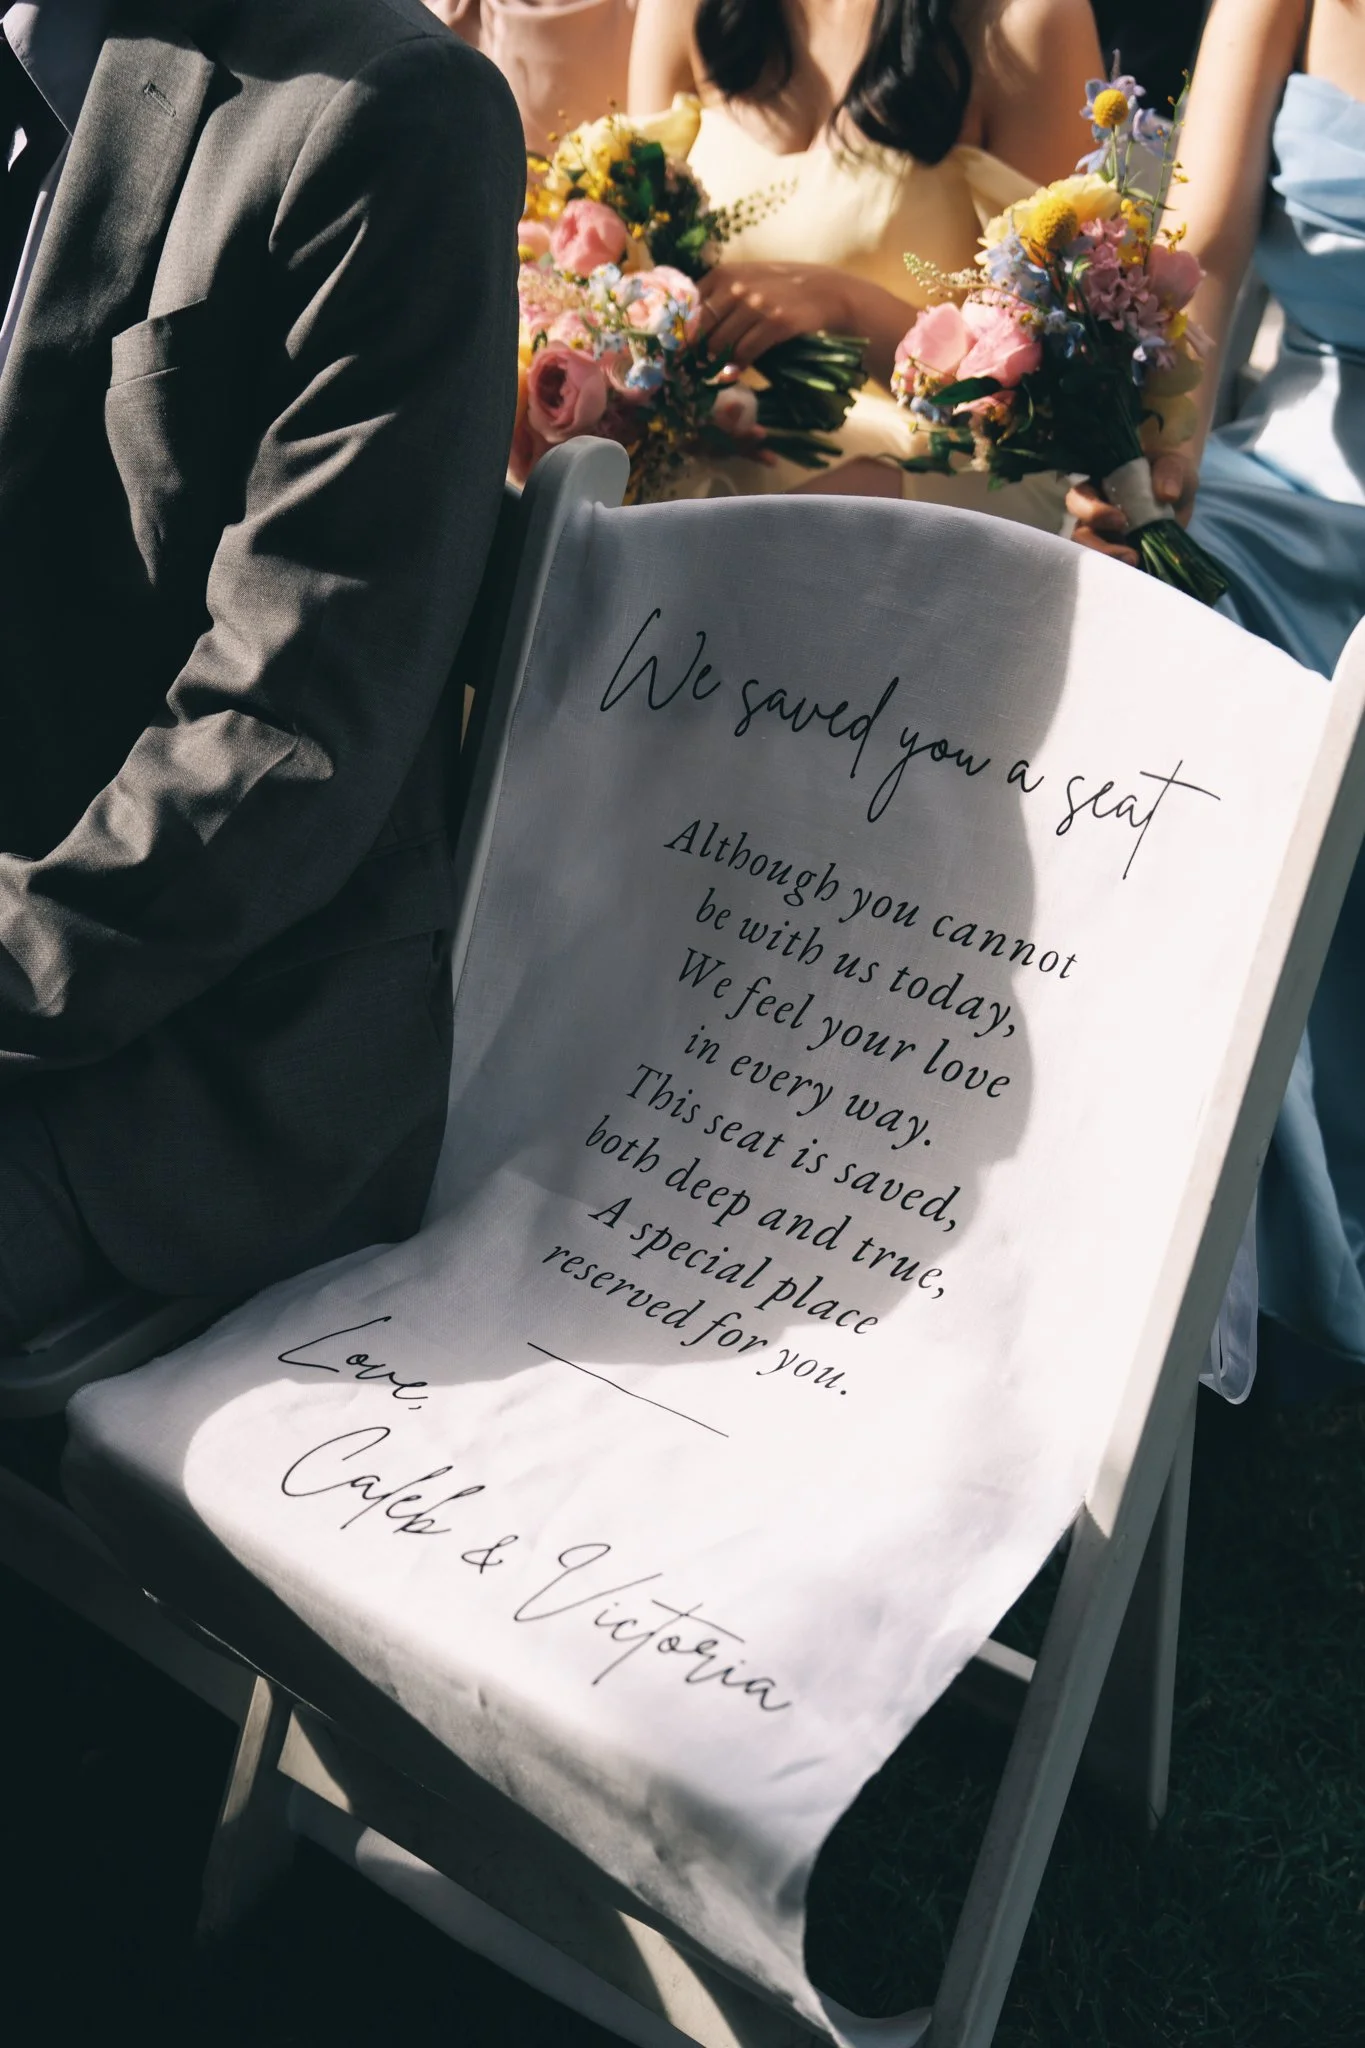 We saved you a seat
Although you cannot
be with us today,
We feel your love
in every way.
This seat is saved,
both deep and true,
A special place
reserved for you.
Love,
Caleb & Victoria